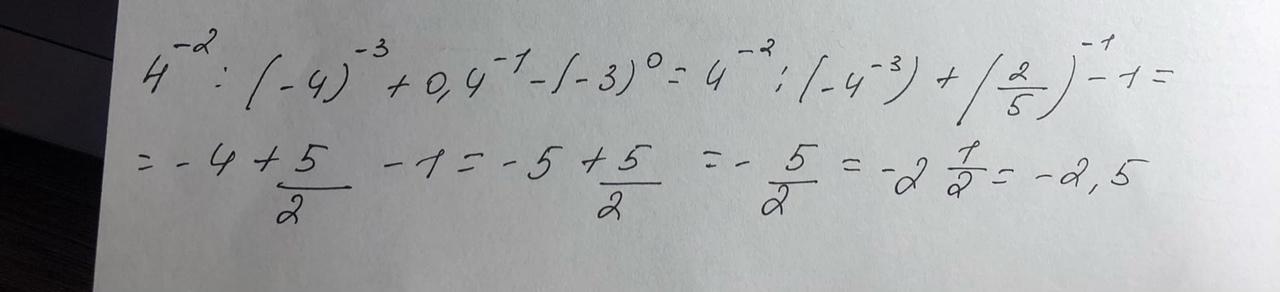 4⁻² : (-4)⁻³ + 0,4⁻¹ - (-3)⁰ = 4⁻² : (-4⁻³) + (2/5)⁻¹ - 1 =
= -4 + 5/2 - 1 = -5 + 5/2 = - 5/2 = -2 1/2 = -2,5